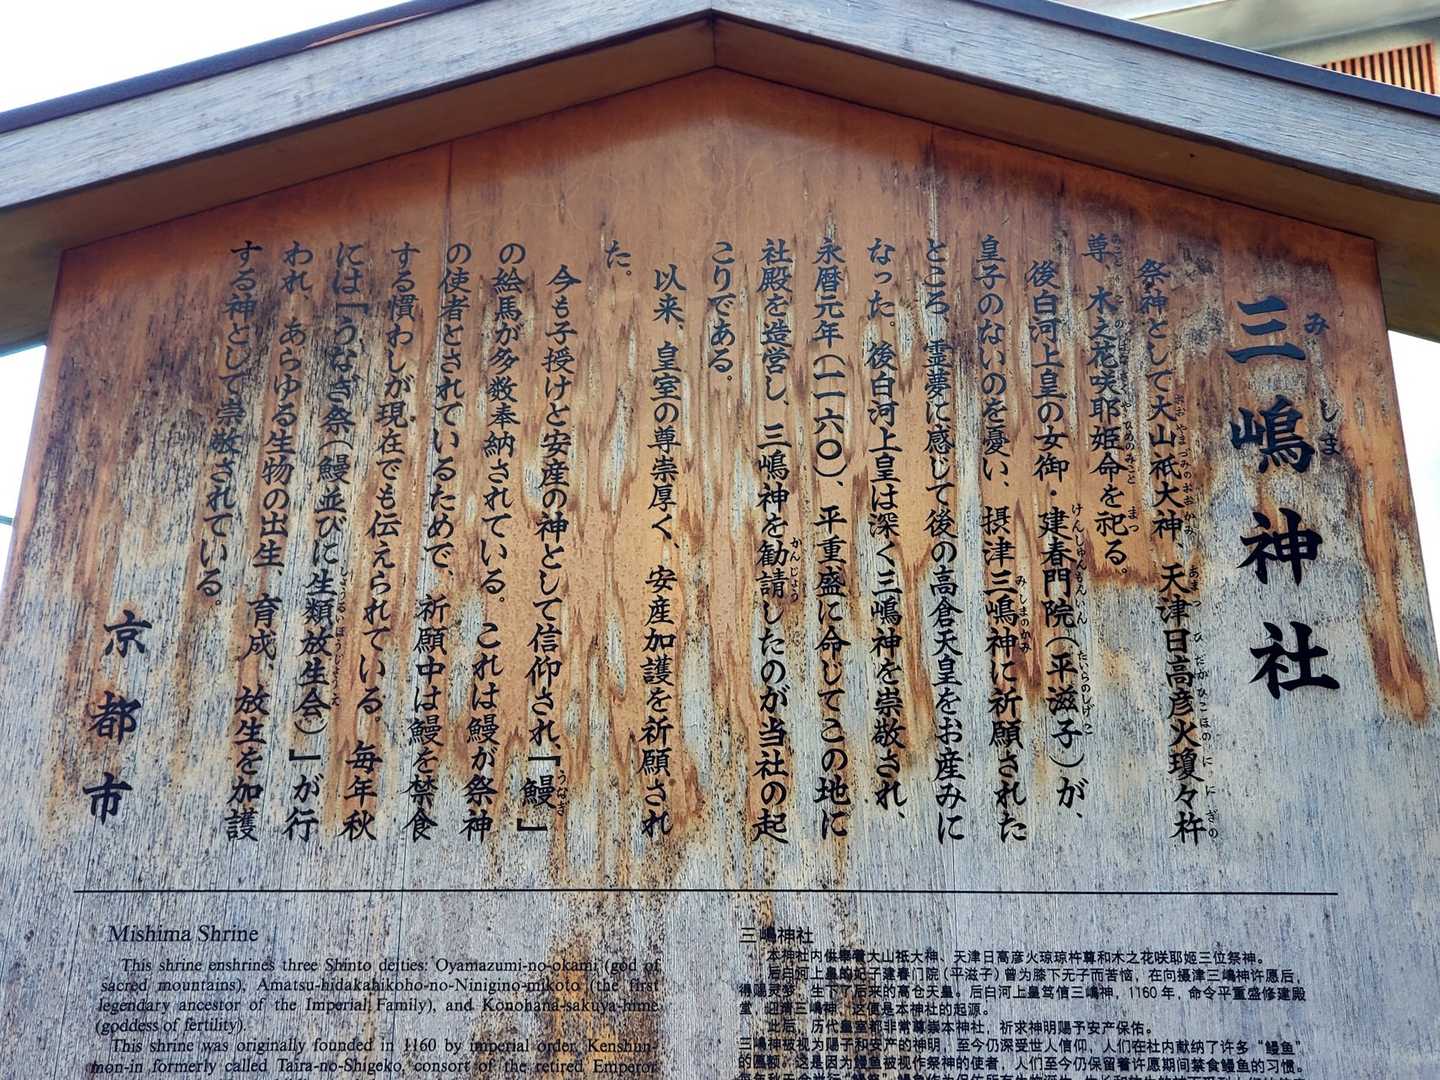 三嶋神社
みしま
祭神として大山祇大神、天津日高彦火瓊々杵
尊、木之花咲耶姫命を祀る。
後白河上皇の女御・建春門院(平滋子)が、
皇子のないのを憂い、摂津三嶋神に祈願された
ところ、霊夢に感じて後の高倉天皇をお産みに
なった。後白河上皇は深く三嶋神を崇敬され、
永暦元年(一一六〇)、平重盛に命じてこの地に
社殿を造営し、三嶋神を勧請したのが当社の起
こりである。
以来、皇室の尊崇厚く、安産加護を祈願され
た。
今も子授けと安産の神として信仰され、「鰻」
の絵馬が多数奉納されている。これは鰻が祭神
の使者とされているためで、祈願中は鰻を禁食
する慣わしが現在でも伝えられている。毎年秋
には「うなぎ祭(鰻並びに生類放生会)」が行
われ、あらゆる生物の出生、育成、放生を加護
する神として崇敬されている。
京都市
Mishima Shrine
This shrine enshrines three Shinto deities: Oyamazumi-no-okami (god of
sacred mountains), Amatsu-hidakahikoho-no-Ninigino-mikoto (the first
legendary ancestor of the Imperial Family), and Konohana-sakuya-hime
(goddess of fertility).
This shrine was originally founded in 1160 by imperial order. Kenshun-
mon-in formerly called Taira-no-Shigeko, consort of the retired Emperor
三嶋神社
本神社内供奉着大山祇大神、天津日高彦火琼琼杵尊和木之花咲耶姬三位祭神。
后白河上皇的妃子建春门院(平滋子)曾为膝下无子而苦恼，在向摄津三嶋神许愿后，
得赐灵梦，生下了后来的高仓天皇。后白河上皇笃信三嶋神，1160年，命令平重盛修建殿
堂，迎请三嶋神，这便是本神社的起源。
此后，历代皇室都非常尊崇本神社，祈求神明赐予安产保佑。
三嶋神被视为赐子和安产的神明，至今仍深受世人信仰，人们在社内献纳了许多“鳗鱼”
的匾额。这是因为鳗鱼被视作祭神的使者，人们至今仍保留着许愿期间禁食鳗鱼的习惯。